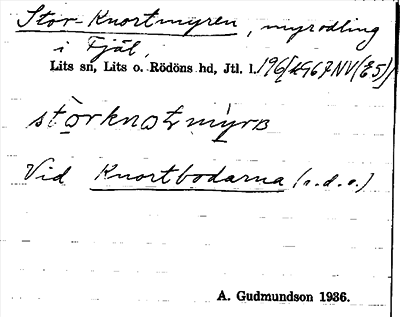 Stor-Knortmyren, myrodling
i Fjäl,
Lits sn, Lits o. Rödöns hd, Jtl. l.
stòrknɔtmy̌rв
Vid Knortbodarna (s.d.o.)
A. Gudmundson 1936.